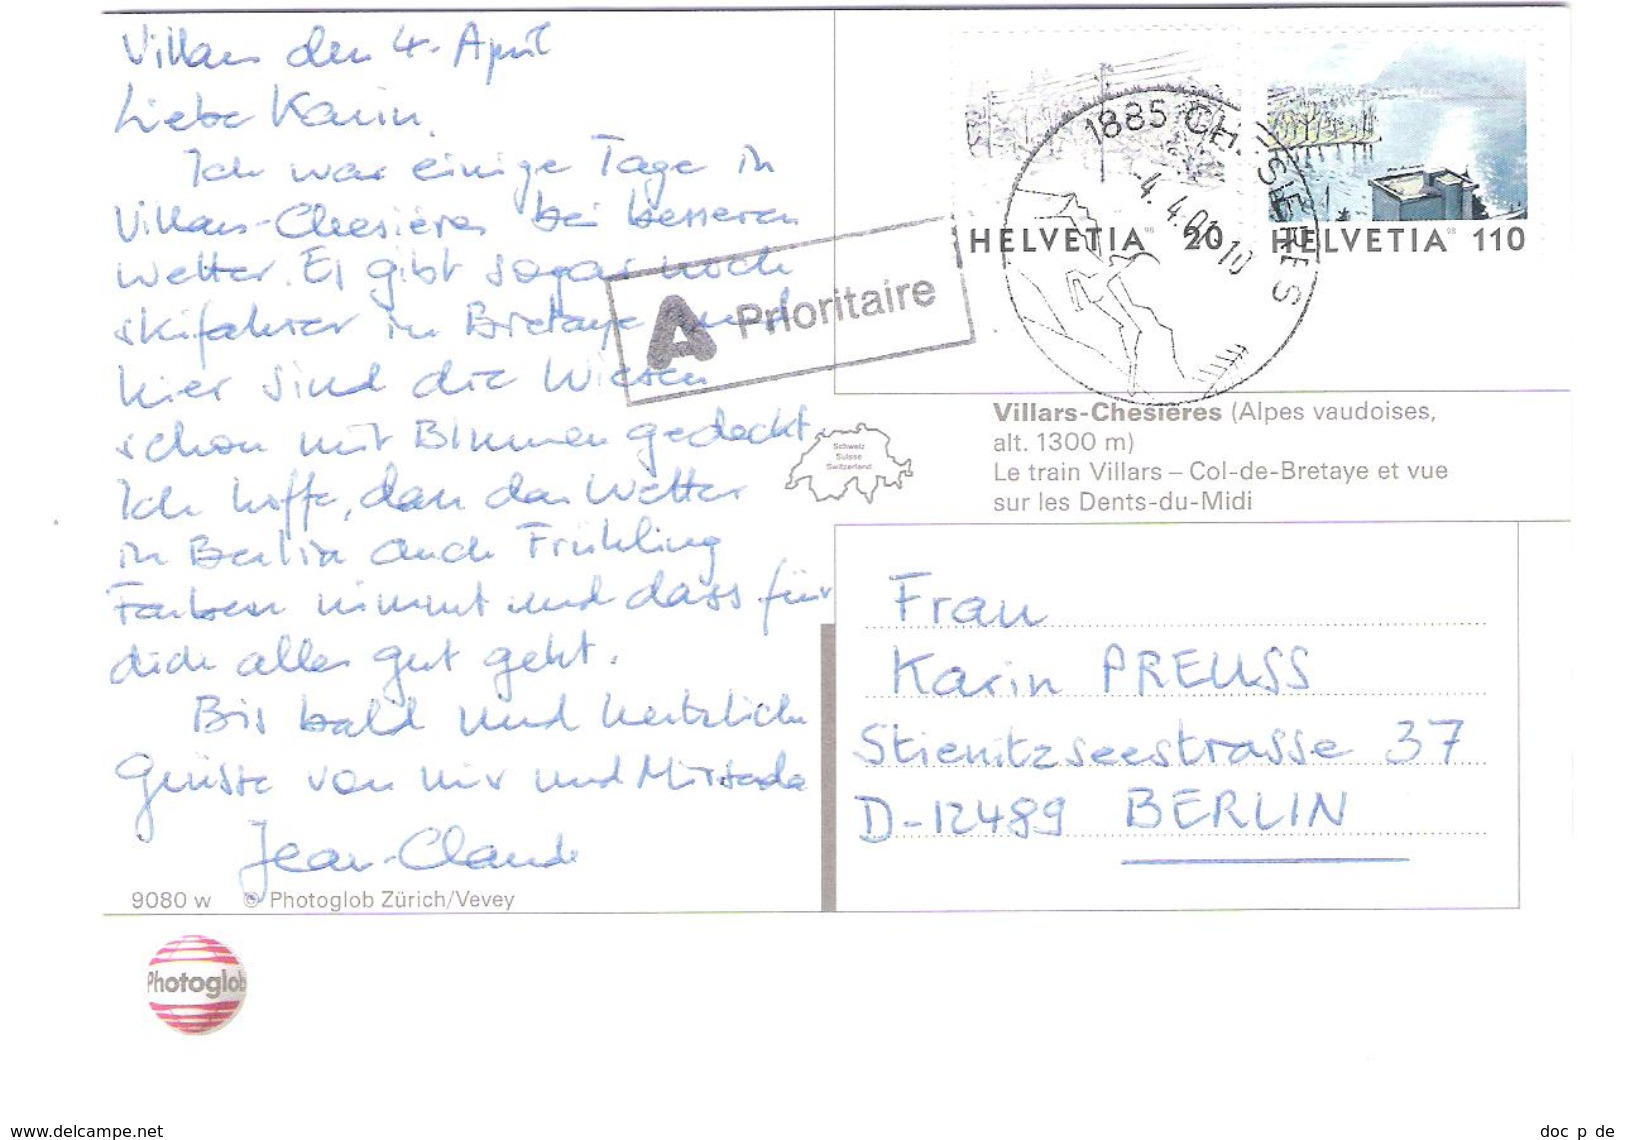 Villars den 4. April
Liebe Karin,
Ich war einige Tage in
Villars-Chesières bei besseren
Wetter. Es gibt sogar noch
skifahrer in Bretaye und
hier sind die Wiesen
schon mit Blumen gedeckt.
Ich hoffe, dass das Wetter
in Berlin auch Frühling
Farben nimmt und dass für
dich alles gut geht.
Bis bald und herzliche
Grüsse von mir und
Jean-Claude
9080 w © Photoglob Zürich/Vevey
Photoglob
A Prioritaire
HELVETIA 98 20
HELVETIA 98 110
1885 CHESIERES
-4. 4.01-10
Schweiz
Suisse
Switzerland
Villars-Chesières (Alpes vaudoises,
alt. 1300 m)
Le train Villars – Col-de-Bretaye et vue
sur les Dents-du-Midi
Frau
Karin PREUSS
Stienitzseestrasse 37
D-12489 BERLIN
www.delcampe.net
doc_p_de